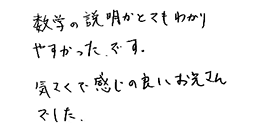 数学の説明がとてもわかり
やすかったです。
気さくで感じの良いお兄さん
でした。